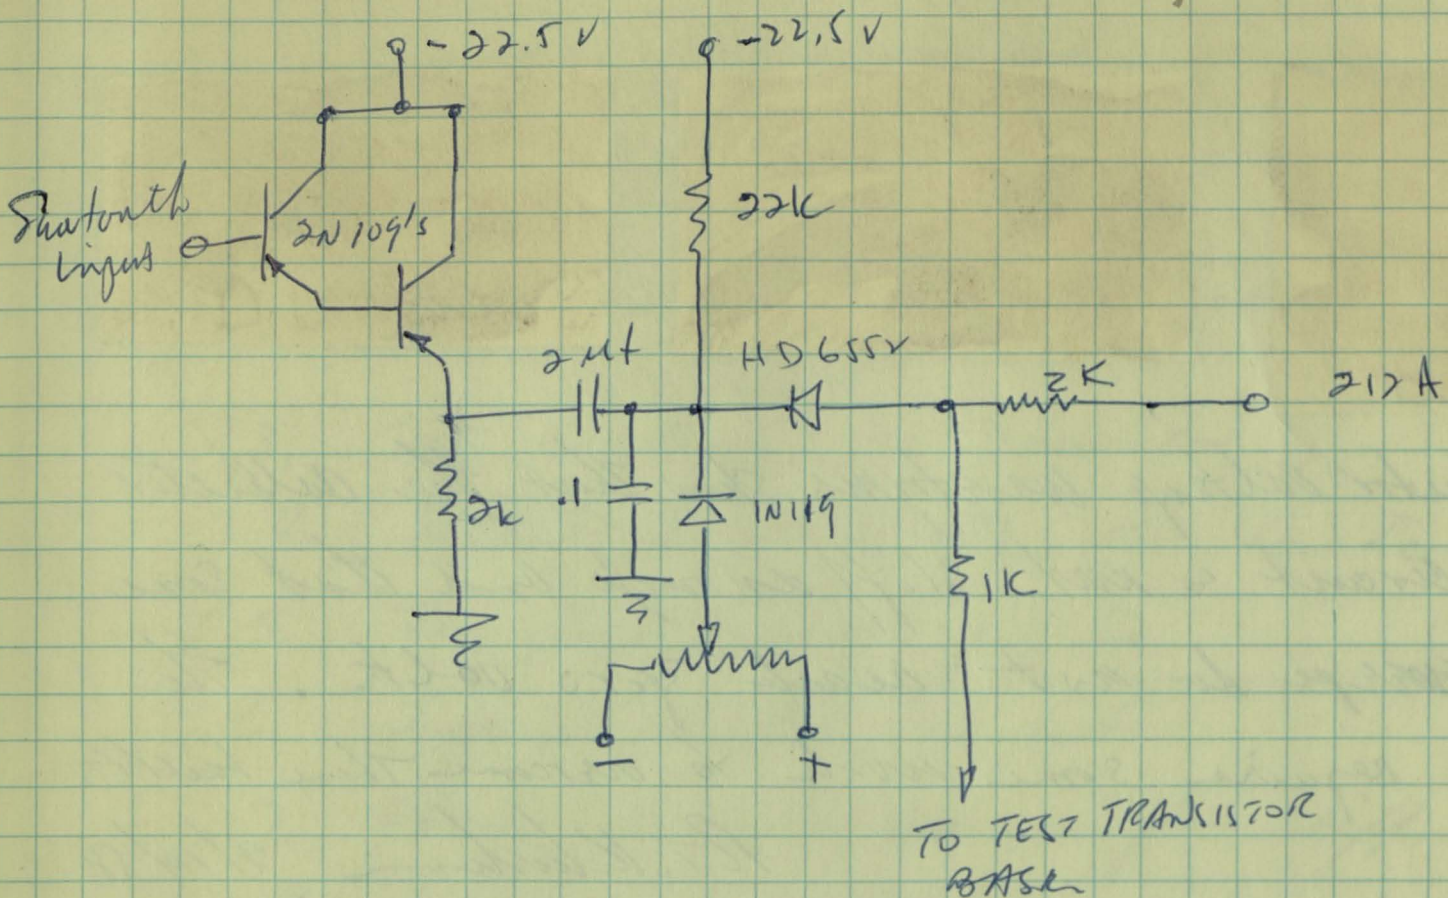 -22.5 V
-22.5 V
22K
Sawtooth
input
2N109's
2 µf
HD 6552
2K
212 A
2K
.1
1N119
1K
-
+
TO TEST TRANSISTOR
BASE